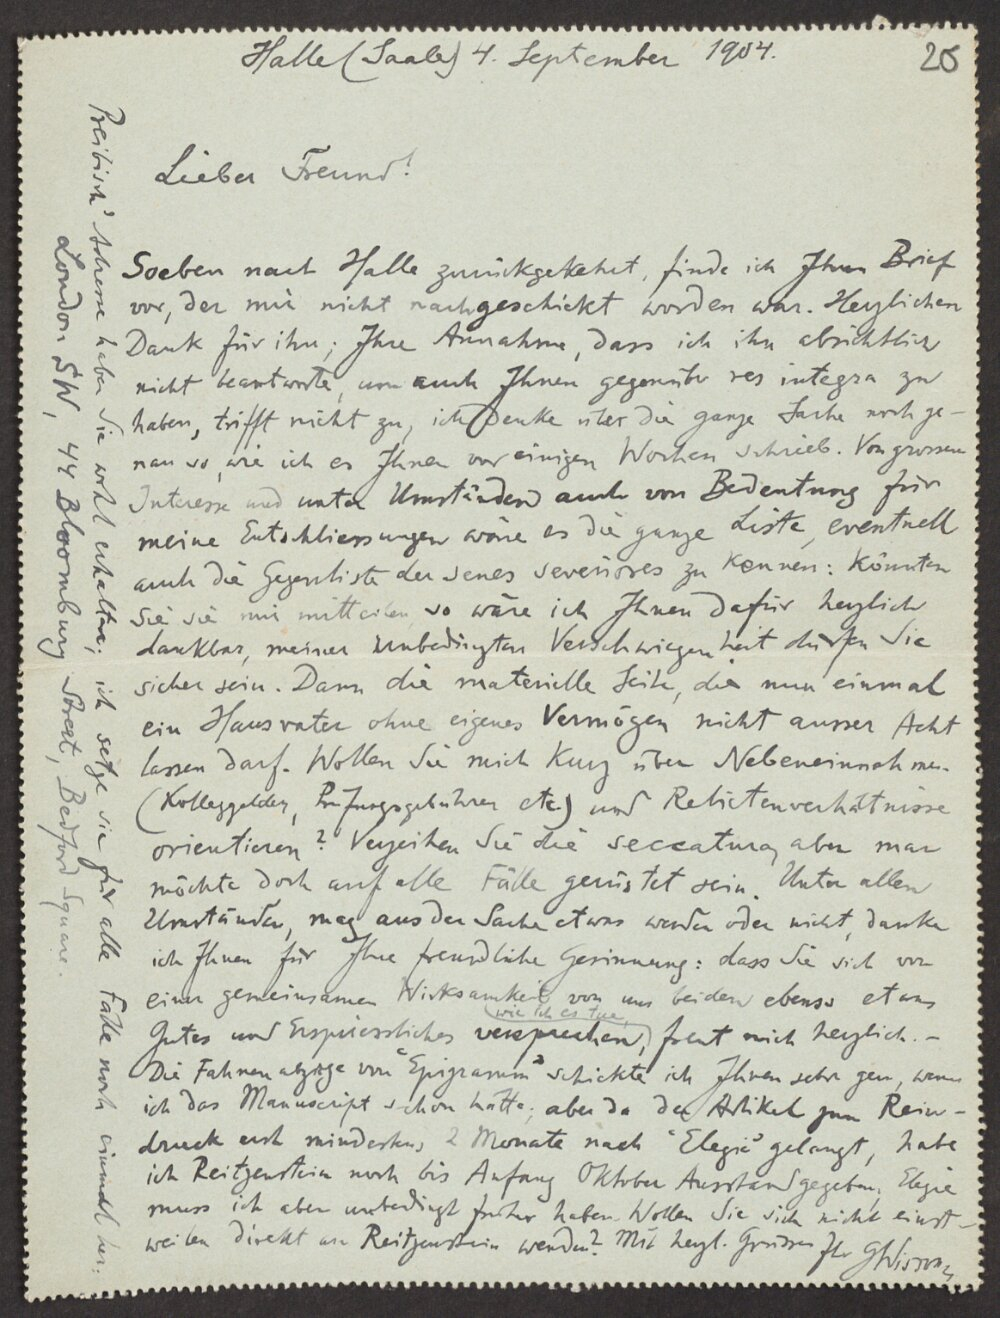 Halle (Saale) 4. September 1904.
26
Lieber Freund!
Soeben nach Halle zurückgekehrt, finde ich Ihren Brief
vor, der mir nicht nachgeschickt worden war. Herzlichen
Dank für ihn; Ihre Annahme, dass ich ihn absichtlich
nicht beantworte, um auch Ihnen gegenüber res integra zu
haben, trifft nicht zu, ich denke über die ganze Sache noch ge-
nau so, wie ich es Ihnen vor einigen Wochen schrieb. Von grossem
Interesse und unter Umständen auch von Bedeutung für
meine Entschliessungen wäre es die ganze Liste, eventuell
auch die Gegenliste der senes severiores zu kennen: Könnten
Sie sie mir mitteilen, so wäre ich Ihnen dafür herzlich
dankbar, meiner unbedingten Verschwiegenheit dürfen Sie
sicher sein. Dann die materielle Seite, die nun einmal
ein Hausvater ohne eigenes Vermögen nicht ausser Acht
lassen darf. Wollen Sie mich kurz über Nebeneinnahmen
(Kolleggelder, Prüfungsgebühren etc) und Reliktenverhältnisse
orientieren? Verzeihen Sie die seccatura, aber man
möchte doch auf alle Fälle gerüstet sein. Unter allen
Umständen, mag aus der Sache etwas werden oder nicht, danke
ich Ihnen für Ihre freundliche Gesinnung: dass Sie sich von
einer gemeinsamen Wirksamkeit von uns beiden ebenso etwas
Gutes und Erspriessliches versprechen, wie ich es tue, freut mich herzlich. –
Die Fahnenabzüge von "Epigramm" schickte ich Ihnen sehr gern, wenn
ich das Manuscript schon hätte; aber da der Artikel zum Rein-
druck erst mindestens 2 Monate nach "Elegie" gelangt, habe
ich Reitzenstein noch bis Anfang Oktober Ausstand gegeben, Elegie
muss ich aber unbedingt früher haben. Wollen Sie sich nicht einst-
weilen direkt an Reitzenstein wenden? Mit herzl. Grüssen Ihr GWissowa
Preibisch' Adresse haben Sie wohl erhalten; ich setze sie für alle Fälle noch einmal her:
London SW, 44 Bloomsbury Street, Bedford Square.